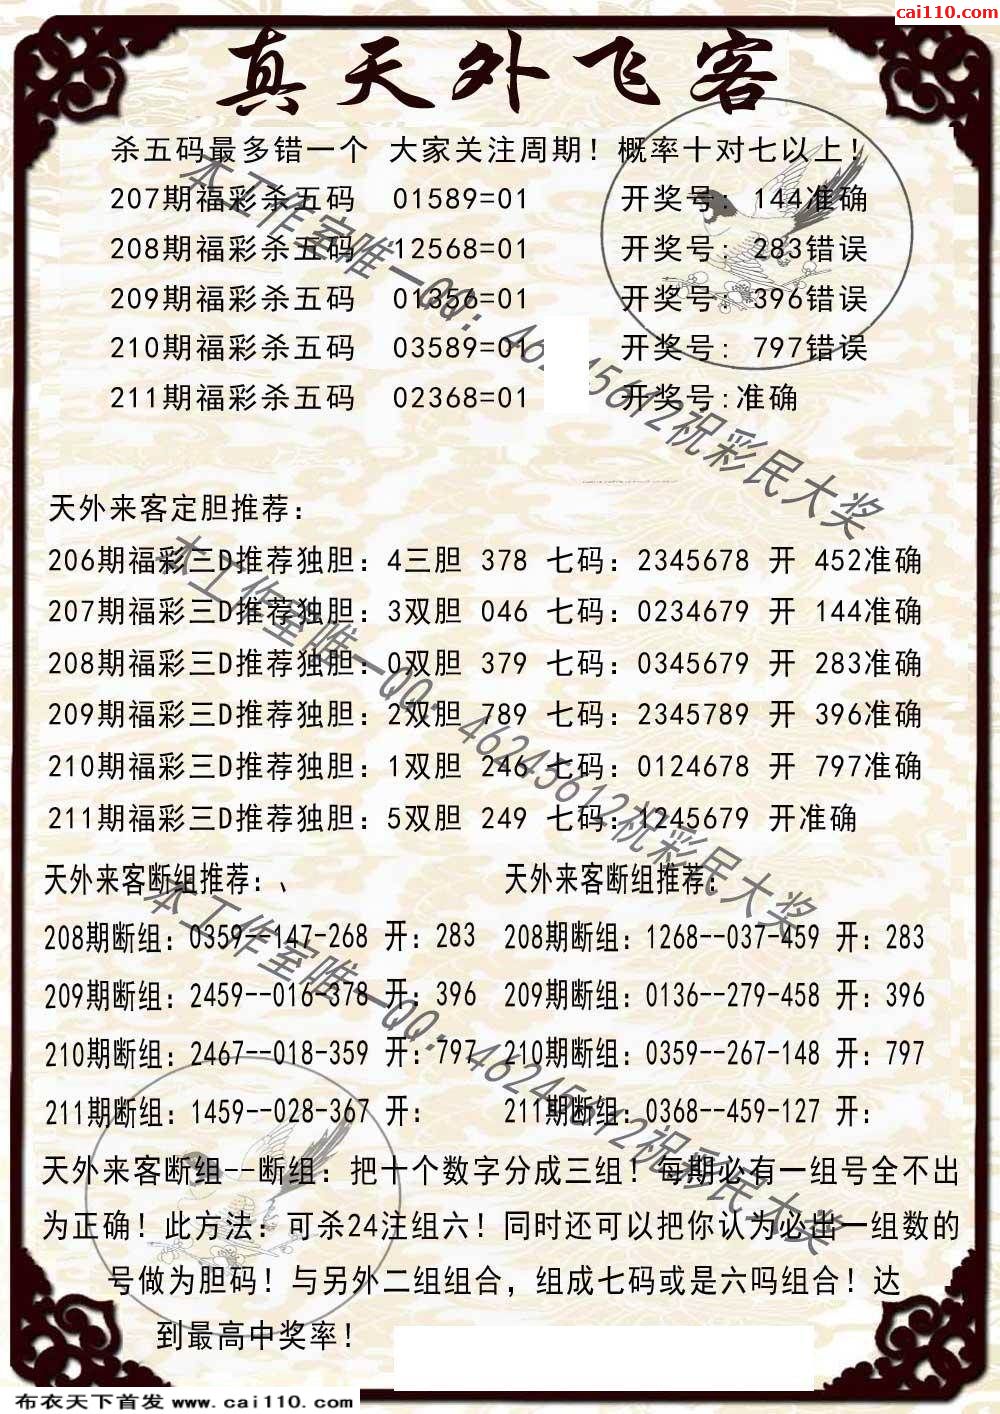 cai110.com
真天外飞客
杀五码最多错一个 大家关注周期！概率十对七以上！
207期福彩杀五码 01589=01 开奖号：144准确
208期福彩杀五码 12568=01 开奖号：283错误
209期福彩杀五码 01356=01 开奖号：396错误
210期福彩杀五码 03589=01 开奖号：797错误
211期福彩杀五码 02368=01 开奖号:准确
本工作室唯一QQ：46245612祝彩民大奖
天外来客定胆推荐：
206期福彩三D推荐独胆：4三胆 378 七码：2345678 开 452准确
207期福彩三D推荐独胆：3双胆 046 七码：0234679 开 144准确
208期福彩三D推荐独胆：0双胆 379 七码：0345679 开 283准确
209期福彩三D推荐独胆：2双胆 789 七码：2345789 开 396准确
210期福彩三D推荐独胆：1双胆 246 七码：0124678 开 797准确
211期福彩三D推荐独胆：5双胆 249 七码：1245679 开准确
本工作室唯一QQ：46245612祝彩民大奖
天外来客断组推荐：、 天外来客断组推荐：
208期断组：0359--147-268 开：283 208期断组：1268--037-459 开：283
209期断组：2459--016-378 开：396 209期断组：0136--279-458 开：396
210期断组：2467--018-359 开：797 210期断组：0359--267-148 开：797
211期断组：1459--028-367 开： 211期断组：0368--459-127 开：
本工作室唯一QQ：46245612祝彩民大奖
天外来客断组--断组：把十个数字分成三组！每期必有一组号全不出
为正确！此方法：可杀24注组六！同时还可以把你认为必出一组数的
号做为胆码！与另外二组组合，组成七码或是六吗组合！达
到最高中奖率！
布衣天下首发 www.cai110.com